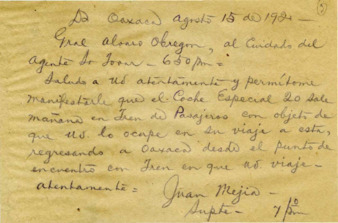 De Oaxaca Agosto 15 de 192
Gral Alvaro Obregon, al Cuidado del
Agente 630 Pm =
Saludo a Ud atentamente y permitome
manifestarle que el Coche Especial 20 Sale
mañana en Tren de Pasajeros con objeto de
que Ud lo ocupe en su viaje a esta,
regresando a Oaxaca desde el punto de
encuentro con Tren en que Ud viaje =
Atentamente =
Juan Mejia =
Supte =